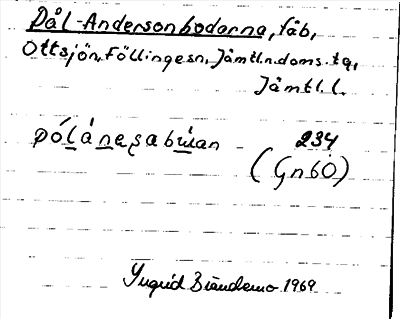 Pål-Andersonbodarna, fäb,
Ottsjön, Föllinge sn, Jämtl. n. doms. tg,
Jämtl. l.
pólánesabu̇an 234
(Gnbö)
Ingrid Brandemo 1969